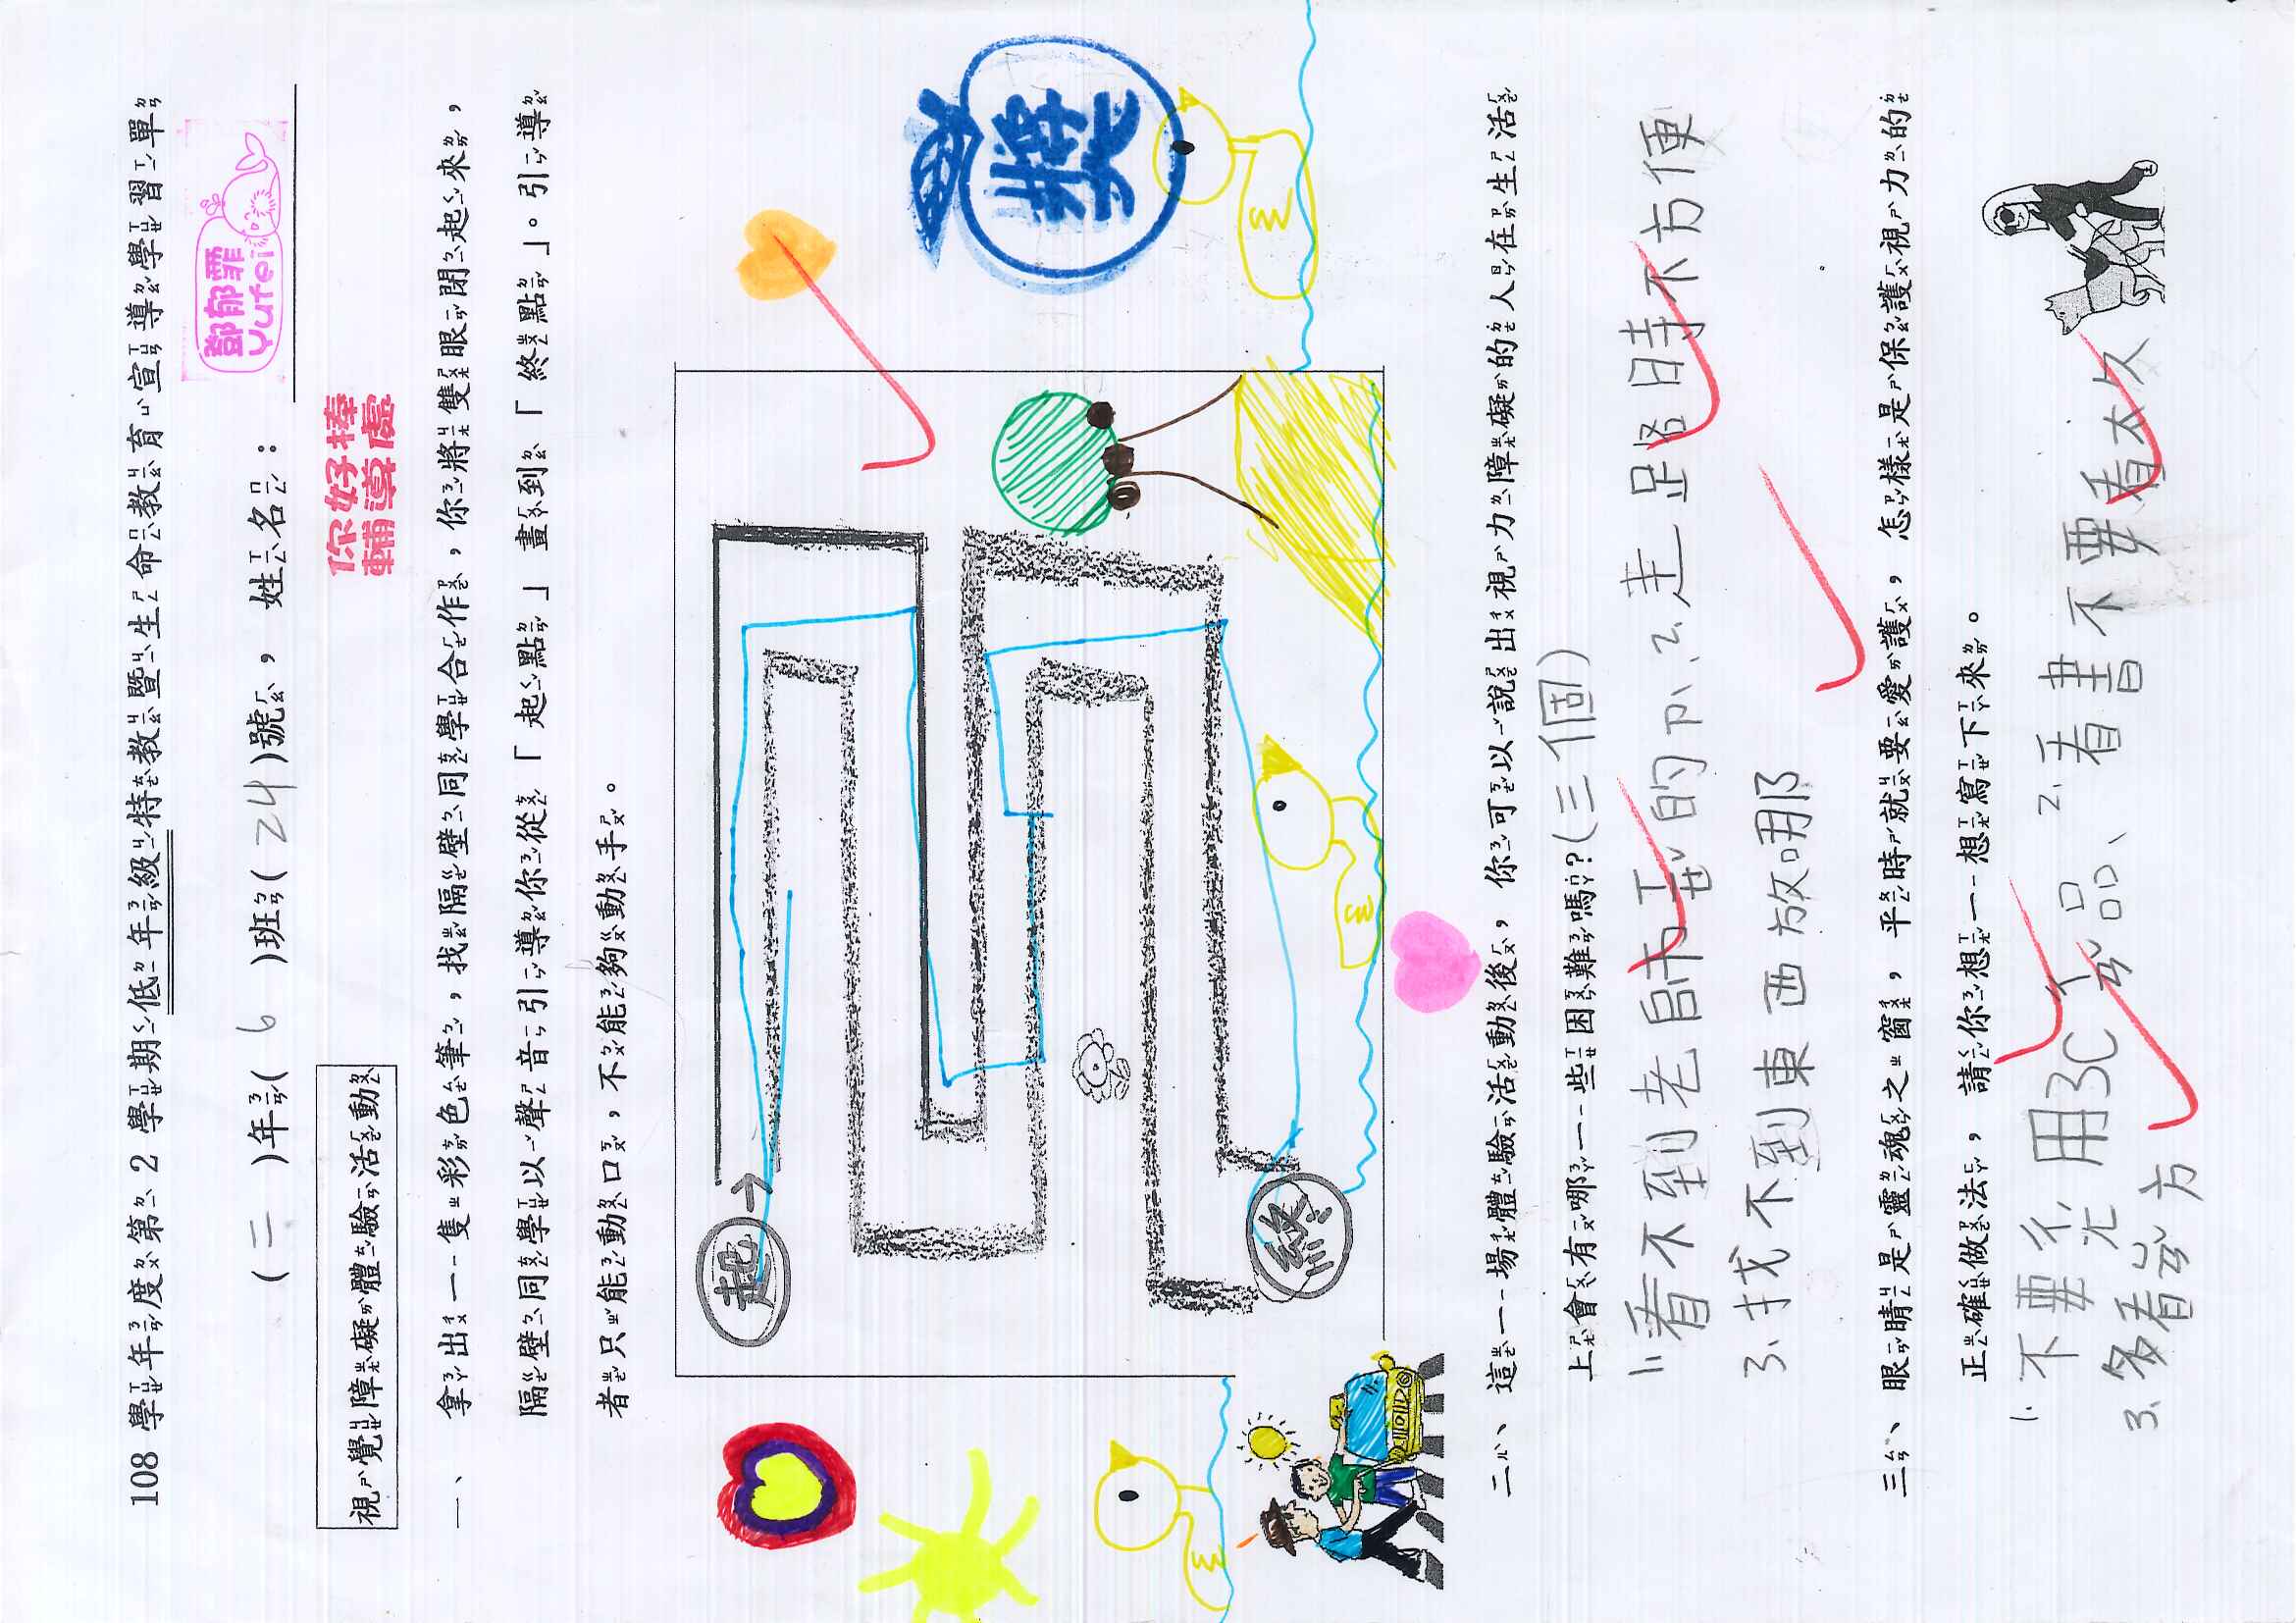 108 學年度第 2 學期低年級特教暨生命教育宣導學習單
(二)年(6)班(24)號，姓名：
鄧郁霏
Yufei
視覺障礙體驗活動
你好棒
輔導處
一、拿出一隻彩色筆，找隔壁同學合作，你將雙眼閉起來，
隔壁同學以聲音引導你從「起點」畫到「終點」。引導
者只能動口，不能夠動手。
起→
終
獎
二、這一場體驗活動後，你可以說出視力障礙的人在生活
上會有哪一些困難嗎?(三個)
1.看不到老師ㄒㄧㄝ的ㄗˋ、2.走路時不方便
3.找不到東西放哪
三、眼睛是靈魂之窗，平時就要愛護，怎樣是保護視力的
正確做法，請你想一想寫下來。
1.不要ㄔㄤˊ用3Cㄔㄢˇ品、2.看書不要看太久
3.多看ㄩㄢˇ方